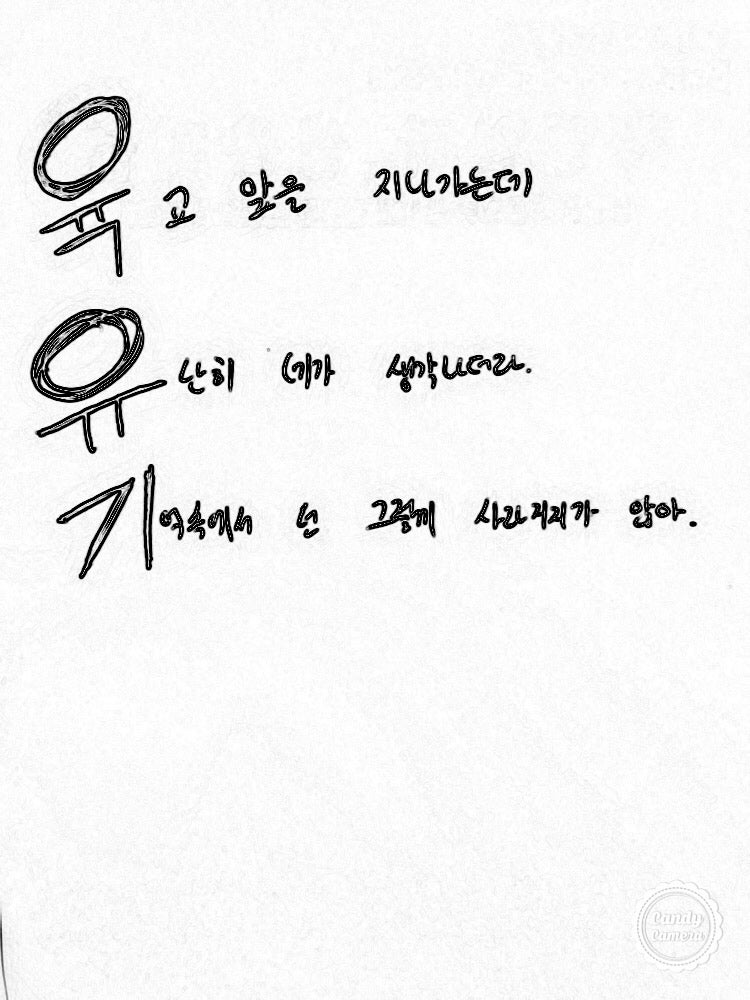 육교 앞을 지나가는데
유난히 네가 생각나더라.
기억속에서 넌 그렇게 사라지지가 않아.
Candy Camera